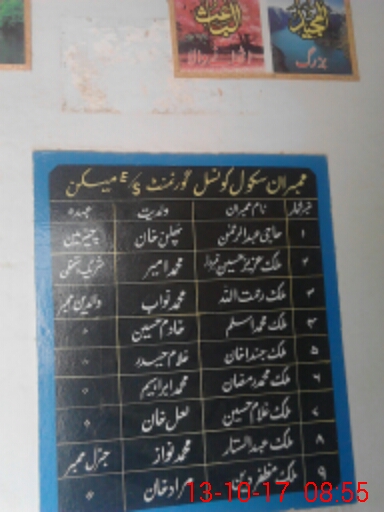 المجید
بزرگ
الباعث
ممبران سکول کونسل گورنمنٹ E/S میکن
نمبر شمار نام ممبران ولدیت عہدہ
۱ حاجی عبدالرحمٰن پھلن خان چیئرمین
۲ ملک عزیز حسین نمبردار محمد امیر
۳ ملک رحمت اللہ محمد نواب والدین ممبر
۴ ملک محمد اسلم خادم حسین 〃
۵ ملک جندا خان غلام حیدر 〃
۶ ملک محمد رمضان محمد ابراہیم 〃
۷ ملک غلام حسین لعل خان 〃
۸ ملک عبدالستار محمد نواز جنرل ممبر
۹ ملک مظفر مراد خان 〃
13-10-17 08:55